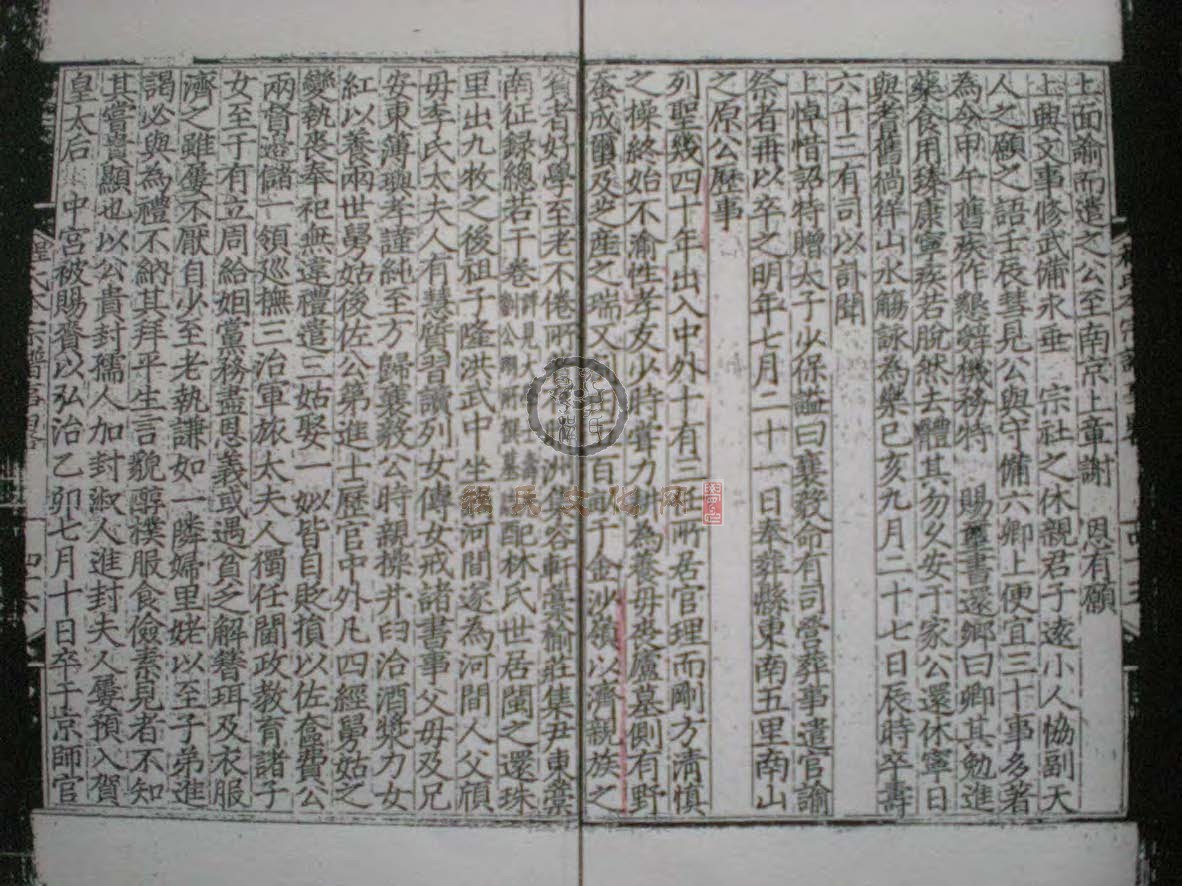 上面諭而遣之公至南京上章謝 恩有願
上興文事修武備永垂 宗社之休親君子遠小人協副天
人之願之語壬辰彗見公與守備六卿上便宜三十事多著
為令甲午舊疾作懇辭機務特 賜璽書還鄉曰卿其勉進
藥食用臻康寧疾若脫然去體其勿久安于家公還休寧日
與耆舊徜徉山水觴詠為樂己亥九月二十七日辰時卒壽
六十三有司以訃聞
上悼惜詔特贈太子少保謚曰襄毅命有司營葬事遣官諭
祭者再以卒之明年七月二十一日奉葬縣東南五里南山
之原公歷事
列聖幾四十年出入中外十有三任所居官理而剛方清慎
之操終始不渝性孝友少時嘗力耕為養母喪廬墓側有野
蚕成繭及芝產之瑞又割田百畝于金沙嶺以濟親族之
貧者好學至老不倦所著 洲集容軒藁榆莊集尹東藁
南征録總若干卷 配林氏世居閩之還珠
里出九牧之後祖子隆洪武中坐 河間遂為河間人父頎
母李氏太夫人有慧質習讀列女傳女戒諸書事父母及兄
安東薄璵孝謹純至方歸襄毅公時親操井臼治酒漿力女
紅以養兩世舅姑後佐公第進士歷官中外凡四經舅姑之
變執喪奉祀無違禮遣三姑娶一妙皆自貶損以佐奩費公
兩督儲一領廵撫三治軍旅太夫人獨任閫政教育諸子
女至于有立周給姻黨務盡恩義或遇貧乏解簪珥及衣服
濟之雖屢不厭自少至老執謙如一隣婦里姥以至子弟進
謁必與為禮不納其拜平生言貌醇樸服食儉素見者不知
其嘗貴顯也以公貴封孺人加封淑人進封夫人屢預入賀
皇太后 中宮被賜賚以弘治乙卯七月十日卒于京師官